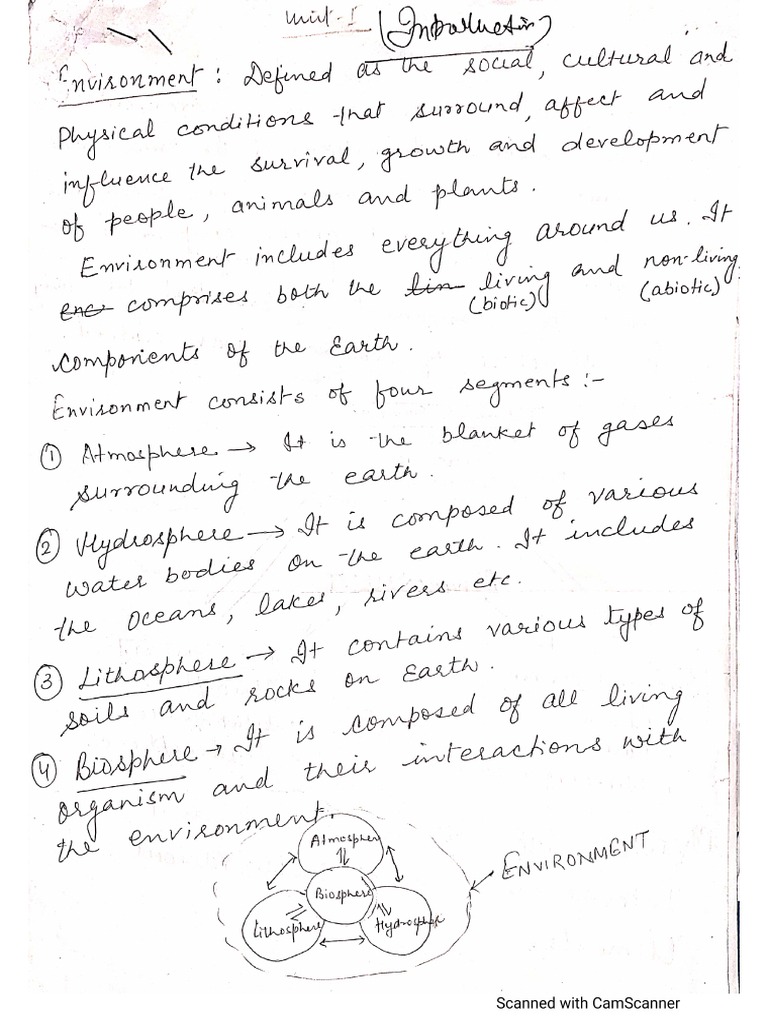 Unit-I
(Introduction)
Environment : Defined as the social, cultural and
Physical conditions that surround, affect and
influence the survival, growth and development
of people, animals and plants.
Environment includes everything around us. It
enc comprises both the lin living and non-living
(biotic) (abiotic)
components of the Earth.
Environment consists of four segments :-
① Atmosphere → It is the blanket of gases
surrounding the earth.
② Hydrosphere → It is composed of various
water bodies on the earth. It includes
the oceans, lakes, rivers etc.
③ Lithosphere → It contains various types of
soils and rocks on Earth.
④ Biosphere → It is composed of all living
organism and their interactions with
the environment.
Atmospher
Biosphere
Lithosphere
Hydrospher
ENVIRONMENT
Scanned with CamScanner